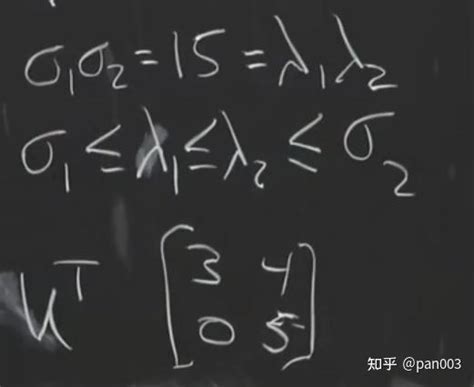 σ₁σ₂=15=λ₁λ₂
σ₁≤λ₁≤λ₂≤σ₂
Uᵀ [3 4
0 5]
知乎 @pan003